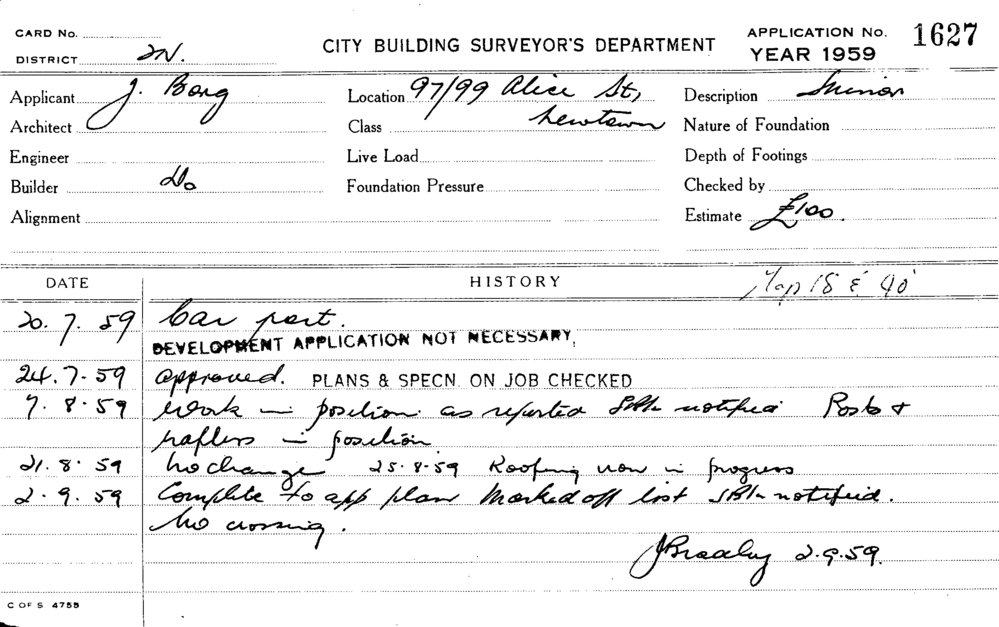 CARD No.
DISTRICT 2N.
CITY BUILDING SURVEYOR'S DEPARTMENT
APPLICATION No. 1627
YEAR 1959
Applicant J. Borg Location 97/99 Alice St, Description Minor
Architect Class Newtown Nature of Foundation
Engineer Live Load Depth of Footings
Builder Do Foundation Pressure Checked by
Alignment Estimate £100.
DATE HISTORY Map 18 & 90
20.7.59 Car port.
DEVELOPMENT APPLICATION NOT NECESSARY.
24.7.59 approved. PLANS & SPECN. ON JOB CHECKED
7.8.59 Work in position as reported notified Posts &
rafters in position
21.8.59 No change 25.8.59 Roofing now in progress
2.9.59 Complete to app plan Marked off list notified.
No crossing.
2.9.59.
C OF S 4755